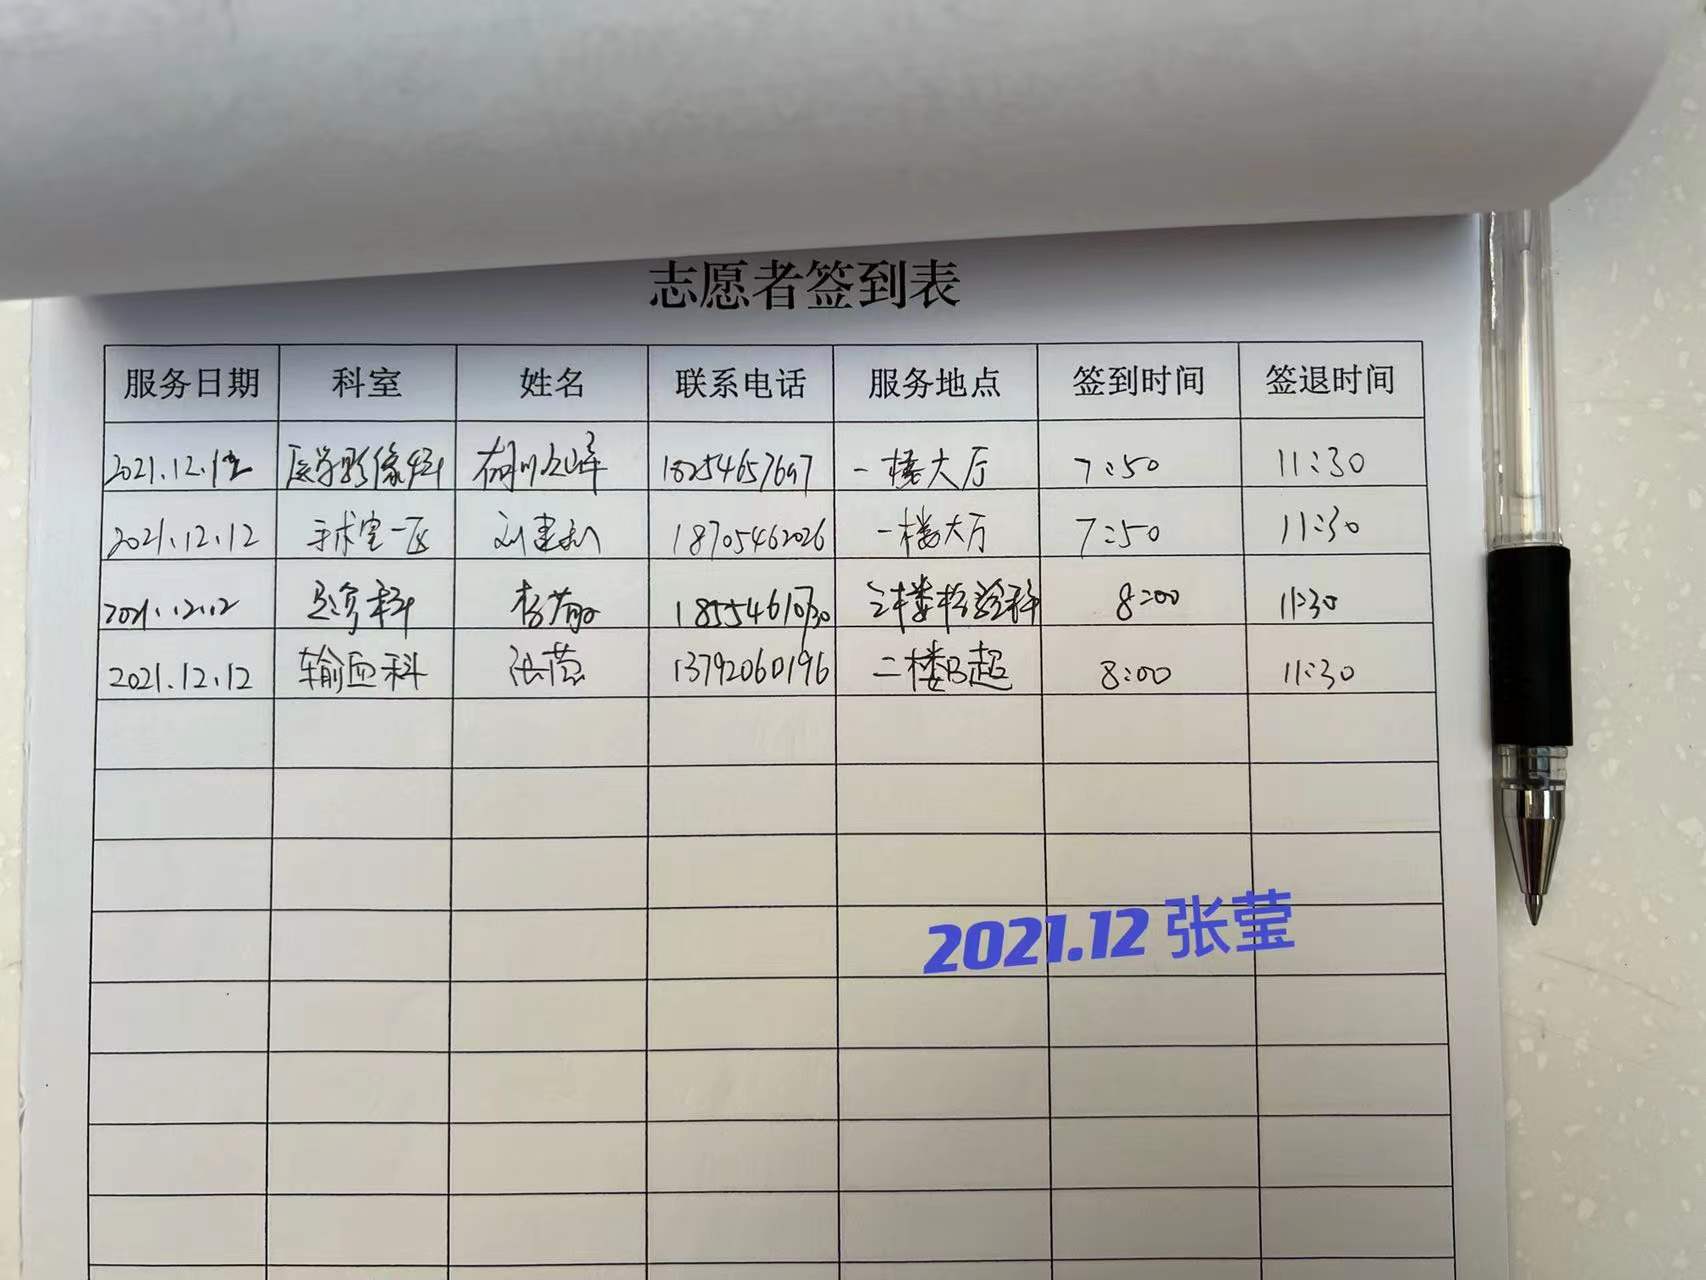 志愿者签到表
服务日期 科室 姓名 联系电话 服务地点 签到时间 签退时间
2021.12.12 医学影像科 18254657697 一楼大厅 7:50 11:30
2021.12.12 手术室一区 刘建 18705462026 一楼大厅 7:50 11:30
2021.12.12 科 18554610730 二楼检验科 8:00 11:30
2021.12.12 输血科 张莹 13792060196 二楼B超 8:00 11:30
2021.12 张莹